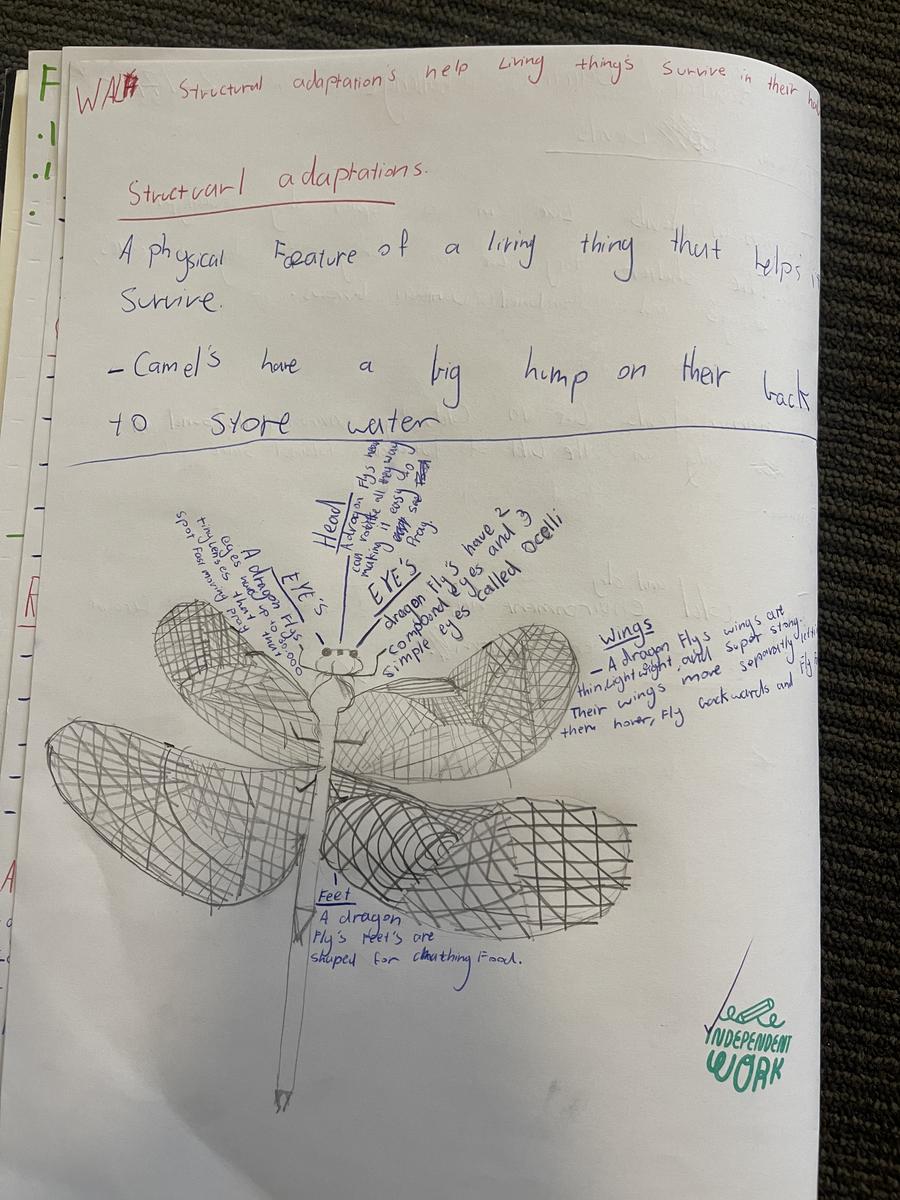 WALT Structural adaptation's help Living thing's Survive in their
Structuarl adaptations.
A physical Feature of a living thing that help's
Survive.
- Camel's have a big hump on their back
to store water
Head
A dragon Flys
can rotate all they way
making it easy to
see
Pray.
EYE'S
A dragon Flys
eyes have up to 30,000
tiny lenses that
spot Fast moving pray
EYE'S
dragon Fly's have 2
compound eyes and 3
simple eyes called ocelli
Wings
- A dragon Flys wings are
thin, Light wight, and super strong.
Their wings move separatly
them hover, Fly backwards and
Feet
A dragon
Fly's Feet's are
shaped for chathing Food.
INDEPENDENT
WORK
F
R
A